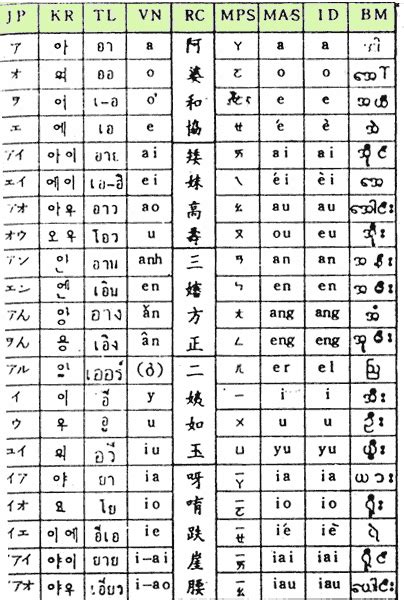 JP KR TL VN RC MPS MAS ID BM
ア 아 อา a 阿 ㄚ a a
オ 외 ออ o 婆 ㄛ o o အော်
ヲ 어 เ-อ o' 和 e e အယီ
エ 에 เอ e 協 ㄝ é è အဲ
アイ 야이 อาย ai 矮 ㄞ ai ai အိုင်
エイ 에이 เอ-อี ei 妹 ㄟ éi èi အေ
アオ 아우 อาว ao 高 ㄠ au au အောင်း
オウ 오우 โอว u 壽 ㄡ ou eu အိုး
アン 안 อาน anh 三 ㄢ an an အနီး
エン 엔 เอิน en 嬉 ㄣ en en အမီး
アん 앙 อาง ăn 方 ㄤ ang ang အံ
ヲん 응 เอิง ân 正 ㄥ eng eng
アル 일 เออร์ (ở) 二 ㄦ er el ဩ
イ 이 อี y 姨 一 i i အီး
ウ 우 อู u 如 ㄨ u u ဦး
ユイ 위 อวี iu 玉 ㄩ yu yu ယွီး
イア 야 ยา ia 呀 一ㄚ ia ia ယား
イオ 요 โย io 唷 一ㄛ io io ရိုး
イエ 이에 เอีเอ ie 跌 一ㄝ ié iè ရဲ
アイ 야이 ยาย i-ai 崖 一ㄞ iai iai ရိုင်
アオ 야우 เอียว i-ao 腰 一ㄠ iau iau ယောင်း